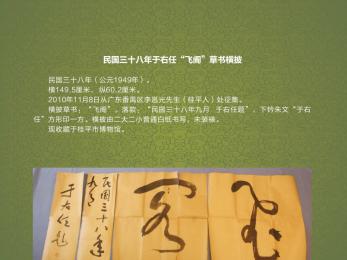 民国三十八年于右任“飞阁”草书横披
民国三十八年（公元1949年）。
横149.5厘米、纵60.2厘米。
2010年11月8日从广东番禺区李崑光先生（桂平人）处征集。
横披草书：“飞阁”。落款：“民国三十八年九月 于右任题”、下钤朱文“于右
任”方形印一方。横披由二大二小普通白纸书写，未装裱。
现收藏于桂平市博物馆。
飞阁
民国三十八年
九月
于右任题